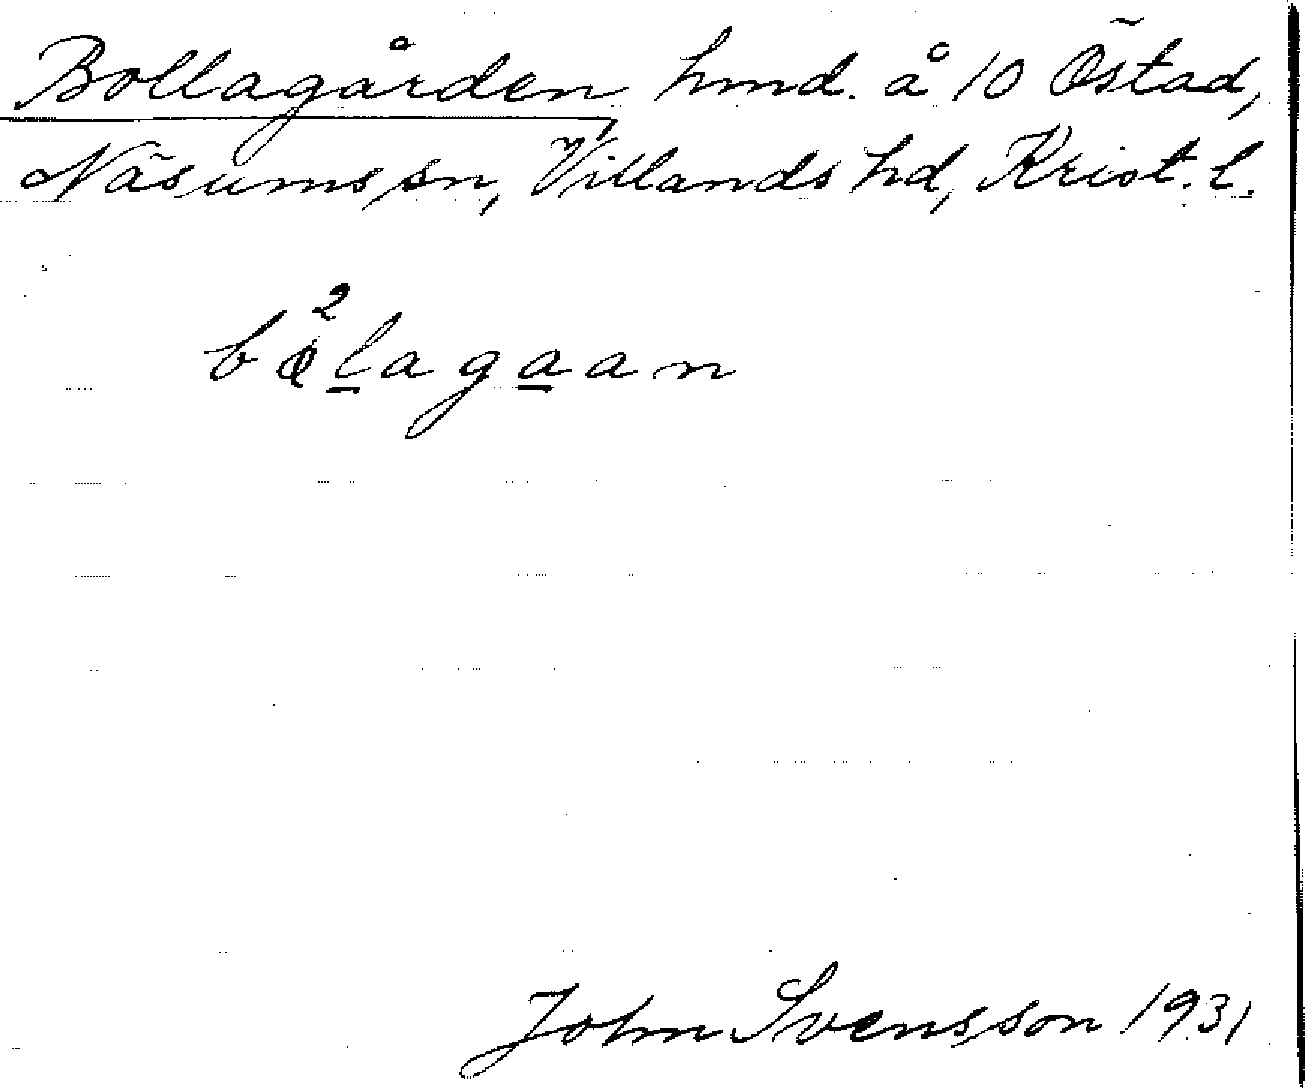 Bollagården, hmd. å 10 Östad,
Näsums sn, Villands hd, Krist. l.
bå²lagaan
John Svensson 1931